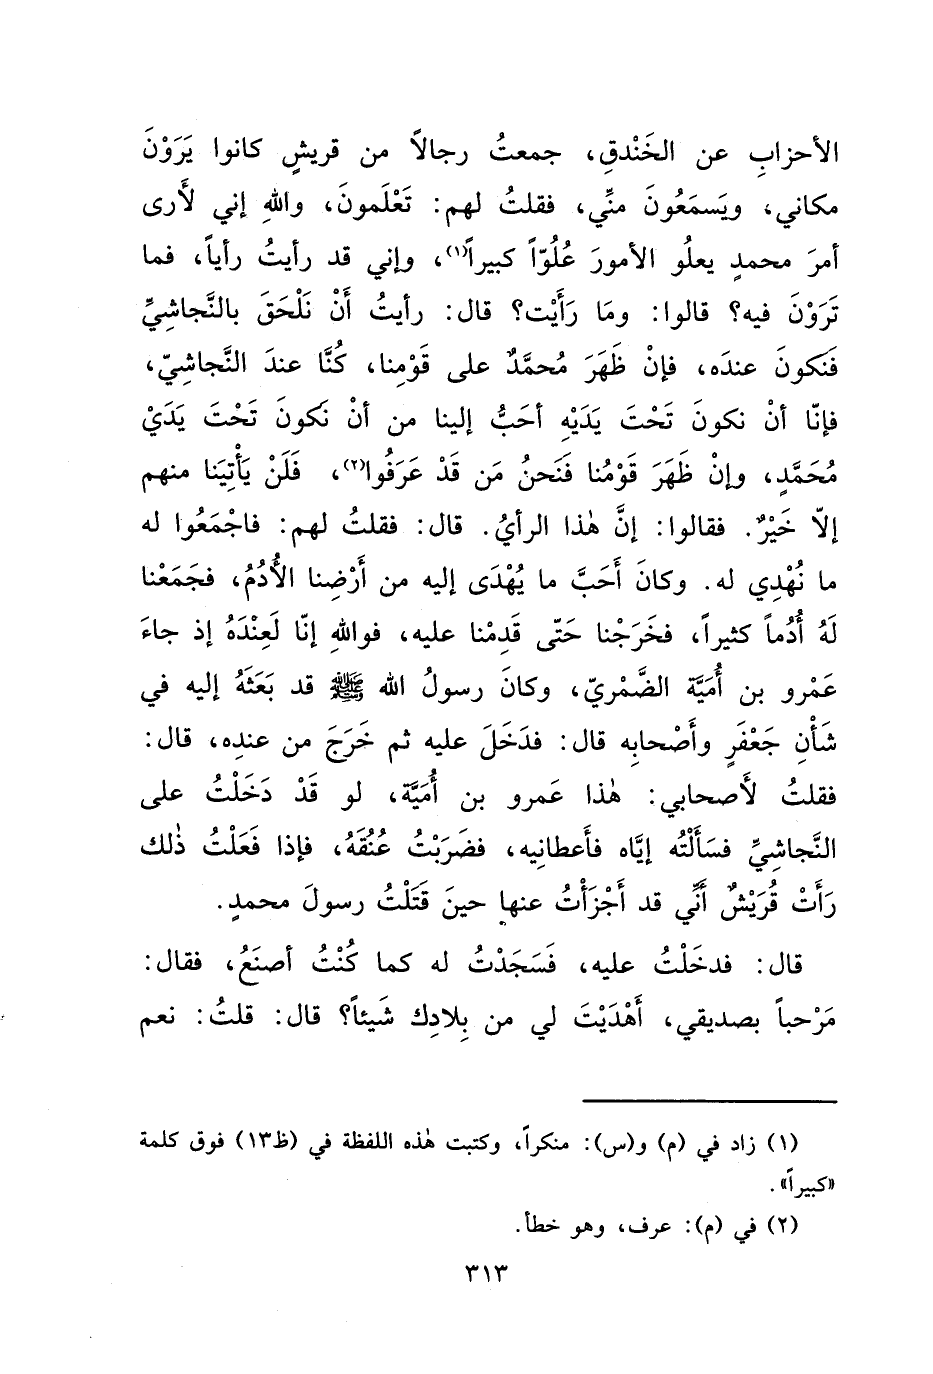 الأحزابِ عن الخَنْدقِ، جمعتُ رجالاً من قريشٍ كانوا يَرَوْنَ
مكاني، ويَسمَعُونَ منِّي، فقلتُ لهم: تَعْلَمونَ، واللهِ إني لأَرى
أمرَ محمدٍ يعلُو الأمورَ عُلُوّاً كبيراً(١)، وإني قد رأيتُ رأياً، فما
تَرَوْنَ فيه؟ قالوا: ومَا رَأَيْت؟ قال: رأيتُ أنْ نَلْحَقَ بالنَّجاشِيِّ
فَنَكونَ عندَه، فإنْ ظَهَرَ مُحمَّدٌ على قَوْمِنا، كُنَّا عندَ النَّجاشِيّ،
فإنّا أنْ نكونَ تَحْتَ يَدَيْهِ أحَبُّ إلينا من أنْ نَكونَ تَحْتَ يَدَيْ
مُحَمَّدٍ، وإنْ ظَهَرَ قَوْمُنا فَنَحنُ مَن قَدْ عَرَفُوا(٢)، فَلَنْ يَأْتِيَنا منهم
إلاّ خَيْرٌ. فقالوا: إنَّ هٰذا الرأيُ. قال: فقلتُ لهم: فاجْمَعُوا له
ما نُهْدِي له. وكانَ أَحَبَّ ما يُهْدَى إليه من أَرْضِنا الأُدُمُ، فجَمَعْنا
لَهُ أُدُماً كثيراً، فخَرَجْنا حَتّى قَدِمْنا عليه، فواللهِ إنّا لَعِنْدَهُ إذ جاءَ
عَمْرو بن أُمَيَّة الضَّمْريّ، وكانَ رسولُ الله ﷺ قد بَعَثَهُ إليه في
شَأْنِ جَعْفَرٍ وأَصْحابِه قال: فدَخَلَ عليه ثم خَرَجَ من عندِه، قال:
فقلتُ لأَصحابي: هٰذا عَمرو بن أُمَيَّة، لو قَدْ دَخَلْتُ على
النَّجاشِيِّ فسَأَلْتُه إيَّاه فأَعطانِيه، فضَرَبْتُ عُنُقَهُ، فإذا فَعَلْتُ ذٰلك
رَأَتْ قُرَيْشٌ أَنِّي قد أَجْزَأْتُ عنها حينَ قَتَلْتُ رسولَ محمدٍ.
قال: فدخَلْتُ عليه، فَسَجَدْتُ له كما كُنْتُ أصنَعُ، فقال:
مَرْحباً بصديقي، أَهْدَيْتَ لي من بِلادِك شَيئاً؟ قال: قلتُ: نعم
(١) زاد في (م) و(س): منكراً، وكتبت هٰذه اللفظة في (ظ١٣) فوق كلمة
«كبيراً».
(٢) في (م): عرف، وهو خطأ.
٣١٣